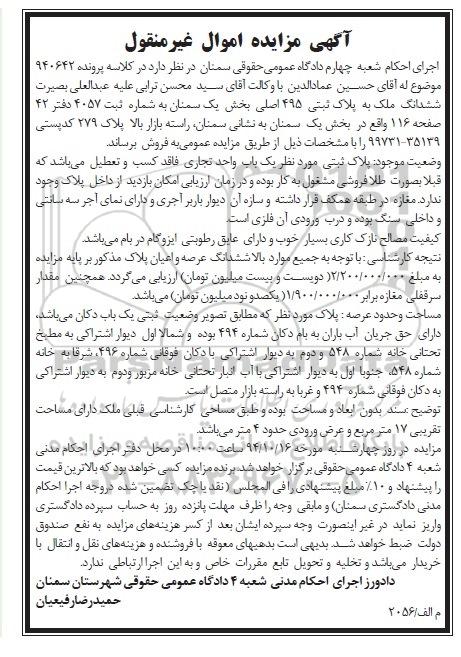 آگهی مزایده اموال غیرمنقول
اجرای احکام شعبه چهارم دادگاه عمومی حقوقی سمنان در نظر دارد در کلاسه پرونده ۹۴۰۶۴۲
موضوع له آقای حسین عمادالدین با وکالت آقای سید محسن ترابی علیه عبدالعلی بصیرت
ششدانگ ملک به پلاک ثبتی ۴۹۵ اصلی بخش یک سمنان به شماره ثبت ۴۰۵۷ دفتر ۴۲
صفحه ۱۱۶ واقع در بخش یک سمنان به نشانی سمنان، راسته بازار بالا پلاک ۲۷۹ کدپستی
۳۵۱۳۹-۹۹۷۳۱ را با مشخصات ذیل از طریق مزایده عمومی به فروش برساند.
وضعیت موجود: پلاک ثبتی مورد نظر یک باب واحد تجاری فاقد کسب و تعطیل می‌باشد که
قبلا بصورت طلا فروشی مشغول به کار بوده و در زمان ارزیابی امکان بازدید از داخل پلاک وجود
ندارد. مغازه در طبقه همکف قرار داشته و سازه آن دیوار باربر آجری و دارای نمای آجر سه سانتی
و داخلی سنگ بوده و درب ورودی آن فلزی است.
کیفیت مصالح نازک کاری بسیار خوب و دارای عایق رطوبتی ایزوگام در بام می‌باشد.
نتیجه کارشناسی: با توجه به جمیع موارد بالا ششدانگ عرصه و اعیان پلاک مذکور بر پایه مزایده
به مبلغ ۲/۲۰۰/۰۰۰/۰۰۰( دویست و بیست میلیون تومان) ارزیابی می‌گردد. همچنین مقدار
سرقفلی مغازه برابر ۱/۹۰۰/۰۰۰/۰۰۰( یکصدو نود میلیون تومان) می‌باشد.
مساحت و حدود عرصه: پلاک مورد نظر که مطابق تصویر وضعیت ثبتی یک باب دکان می‌باشد،
دارای حق جریان آب باران به بام دکان شماره ۴۹۴ بوده و شمالا اول دیوار اشتراکی به مطبخ
تحتانی خانه شماره ۵۴۸ و دوم به دیوار اشتراکی با دکان فوقانی شماره ۴۹۶، شرقا به خانه
شماره ۵۴۸، جنوبا اول به دیوار اشتراکی با آب انبار تحتانی خانه مزبور ودوم به دیوار اشتراکی
به دکان فوقانی شماره ۴۹۴ و غربا به راسته بازار متصل است.
توضیح سند بدون ابعاد و مساحت بوده و طبق مساحی کارشناسی قبلی ملک دارای مساحت
تقریبی ۱۷ متر مربع و عرض ورودی حدود ۴ متر می‌باشد.
مزایده در روز چهارشنبه مورخه ۹۴/۱۰/۱۶ ساعت ۱۰:۰۰ در محل دفتر اجرای احکام مدنی
شعبه ۴ دادگاه عمومی حقوقی برگزار خواهد شد. برنده مزایده کسی خواهد بود که بالاترین قیمت
را پیشنهاد و ۱۰٪ مبلغ پیشنهادی را فی المجلس (نقد یا چک تضمین شده در وجه اجرا احکام
مدنی دادگستری سمنان) و مابقی وجه را ظرف مهلت پانزده روز به حساب سپرده دادگستری
واریز نماید در غیر اینصورت وجه سپرده ایشان بعد از کسر هزینه‌های مزایده به نفع صندوق
دولت ضبط خواهد شد. بدیهی است بدهیهای معوقه با فروشنده و هزینه‌های نقل و انتقال با
خریدار می‌باشد و تخلیه و تحویل تابع مقررات خاص و به این اجرا ارتباطی ندارد.
دادورز اجرای احکام مدنی شعبه ۴ دادگاه عمومی حقوقی شهرستان سمنان
حمیدرضا رفیعیان
م الف/۲۰۵۶